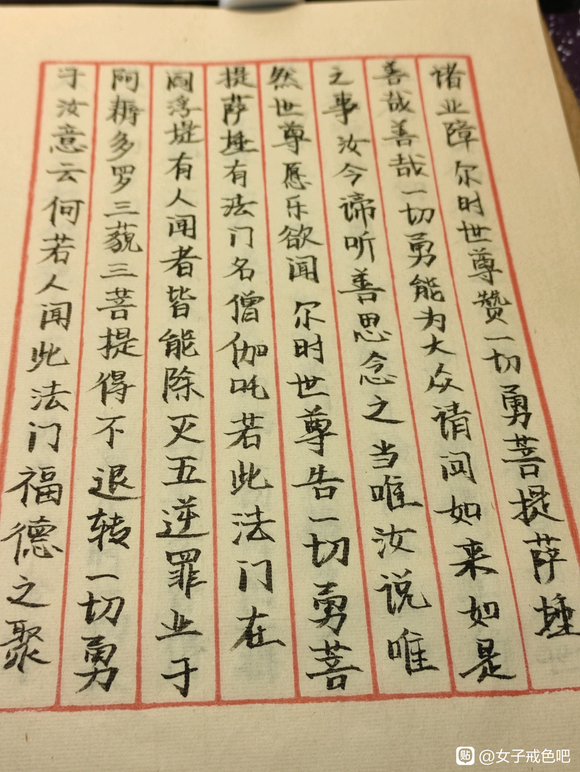 诸业障 尔时世尊赞一切勇菩提萨埵
善哉善哉一切勇能为大众请问如来如是
之事汝今谛听善思念之当唯汝说唯
然世尊愿乐欲闻 尔时世尊告一切勇菩
提萨埵有法门名僧伽吒若此法门在
阎浮堤有人闻者皆能除灭五逆罪业于
阿耨多罗三藐三菩提得不退转一切勇
于汝意云何若人闻此法门福德之聚
贴 @女子戒色吧